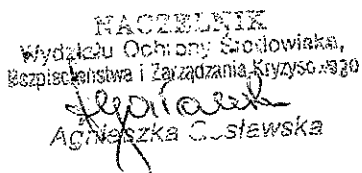 NACZELNIK
Wydziału Ochrony Środowiska,
Bezpieczeństwa i Zarządzania Kryzysowego
Agnieszka